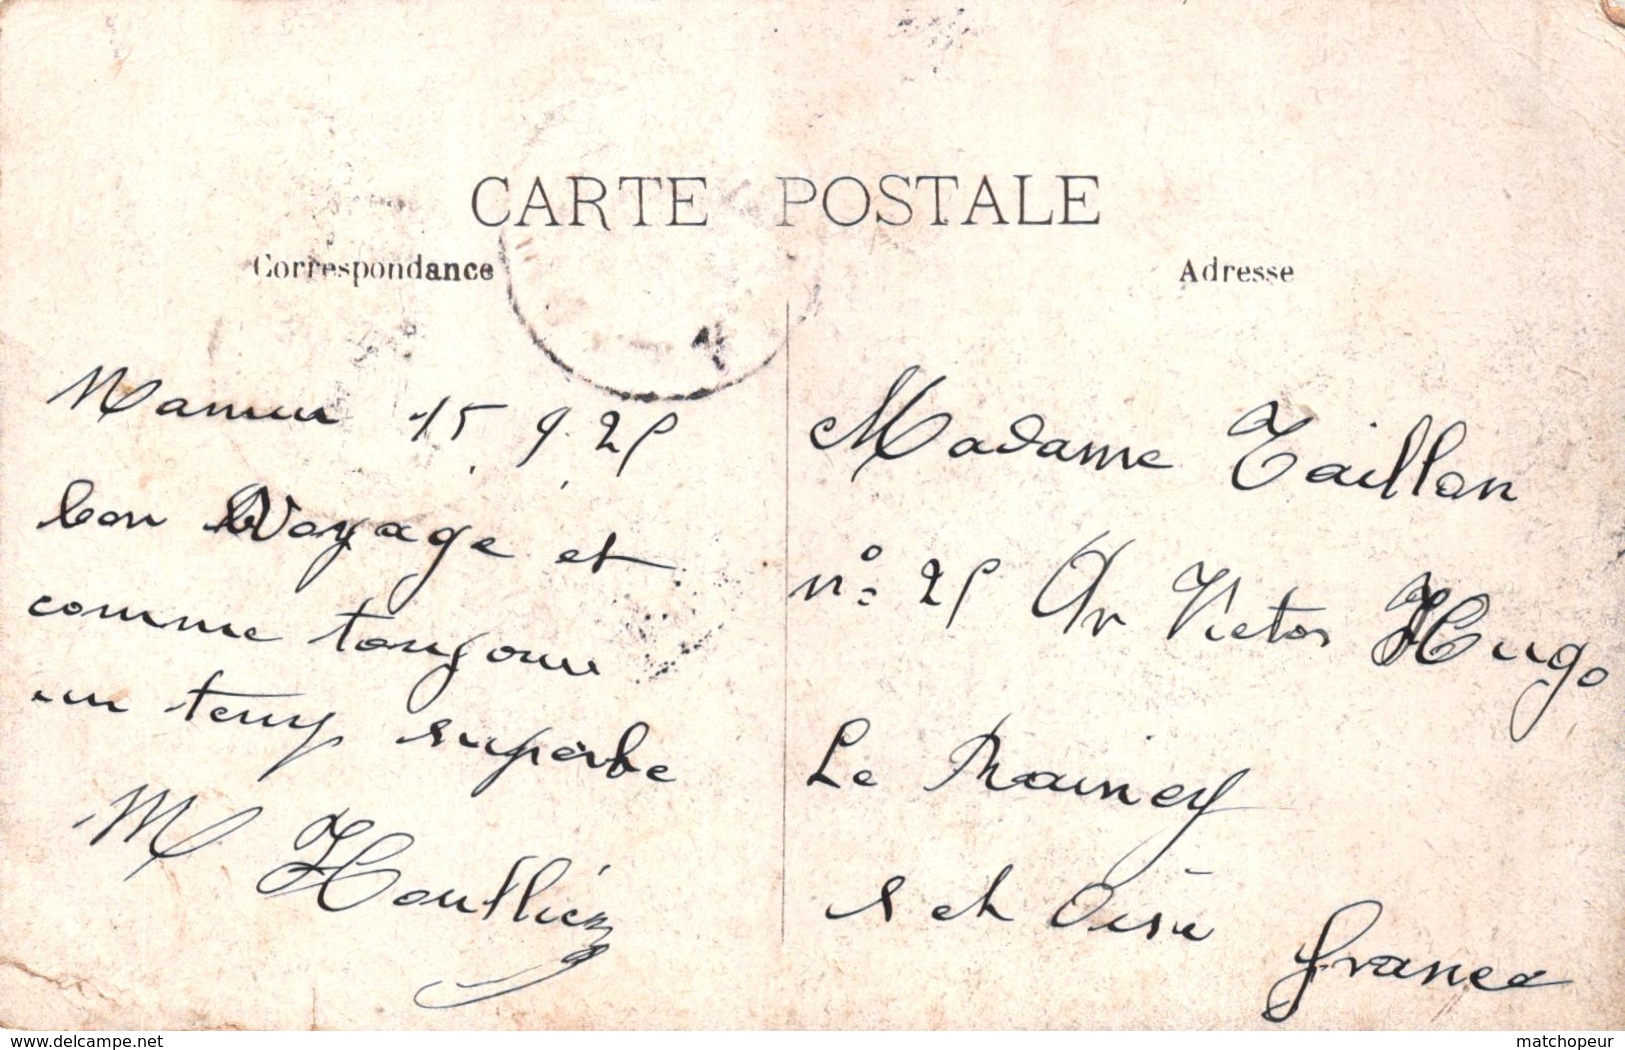 CARTE POSTALE
Correspondance
Adresse
Namur 15.9.25
bon Voyage et
comme toujours
un temps superbe
M Houlliez
Madame Taillon
n° 25 Av Victor Hugo
Le Raincy
s et Oise
france
delcampe.net
matchopeur